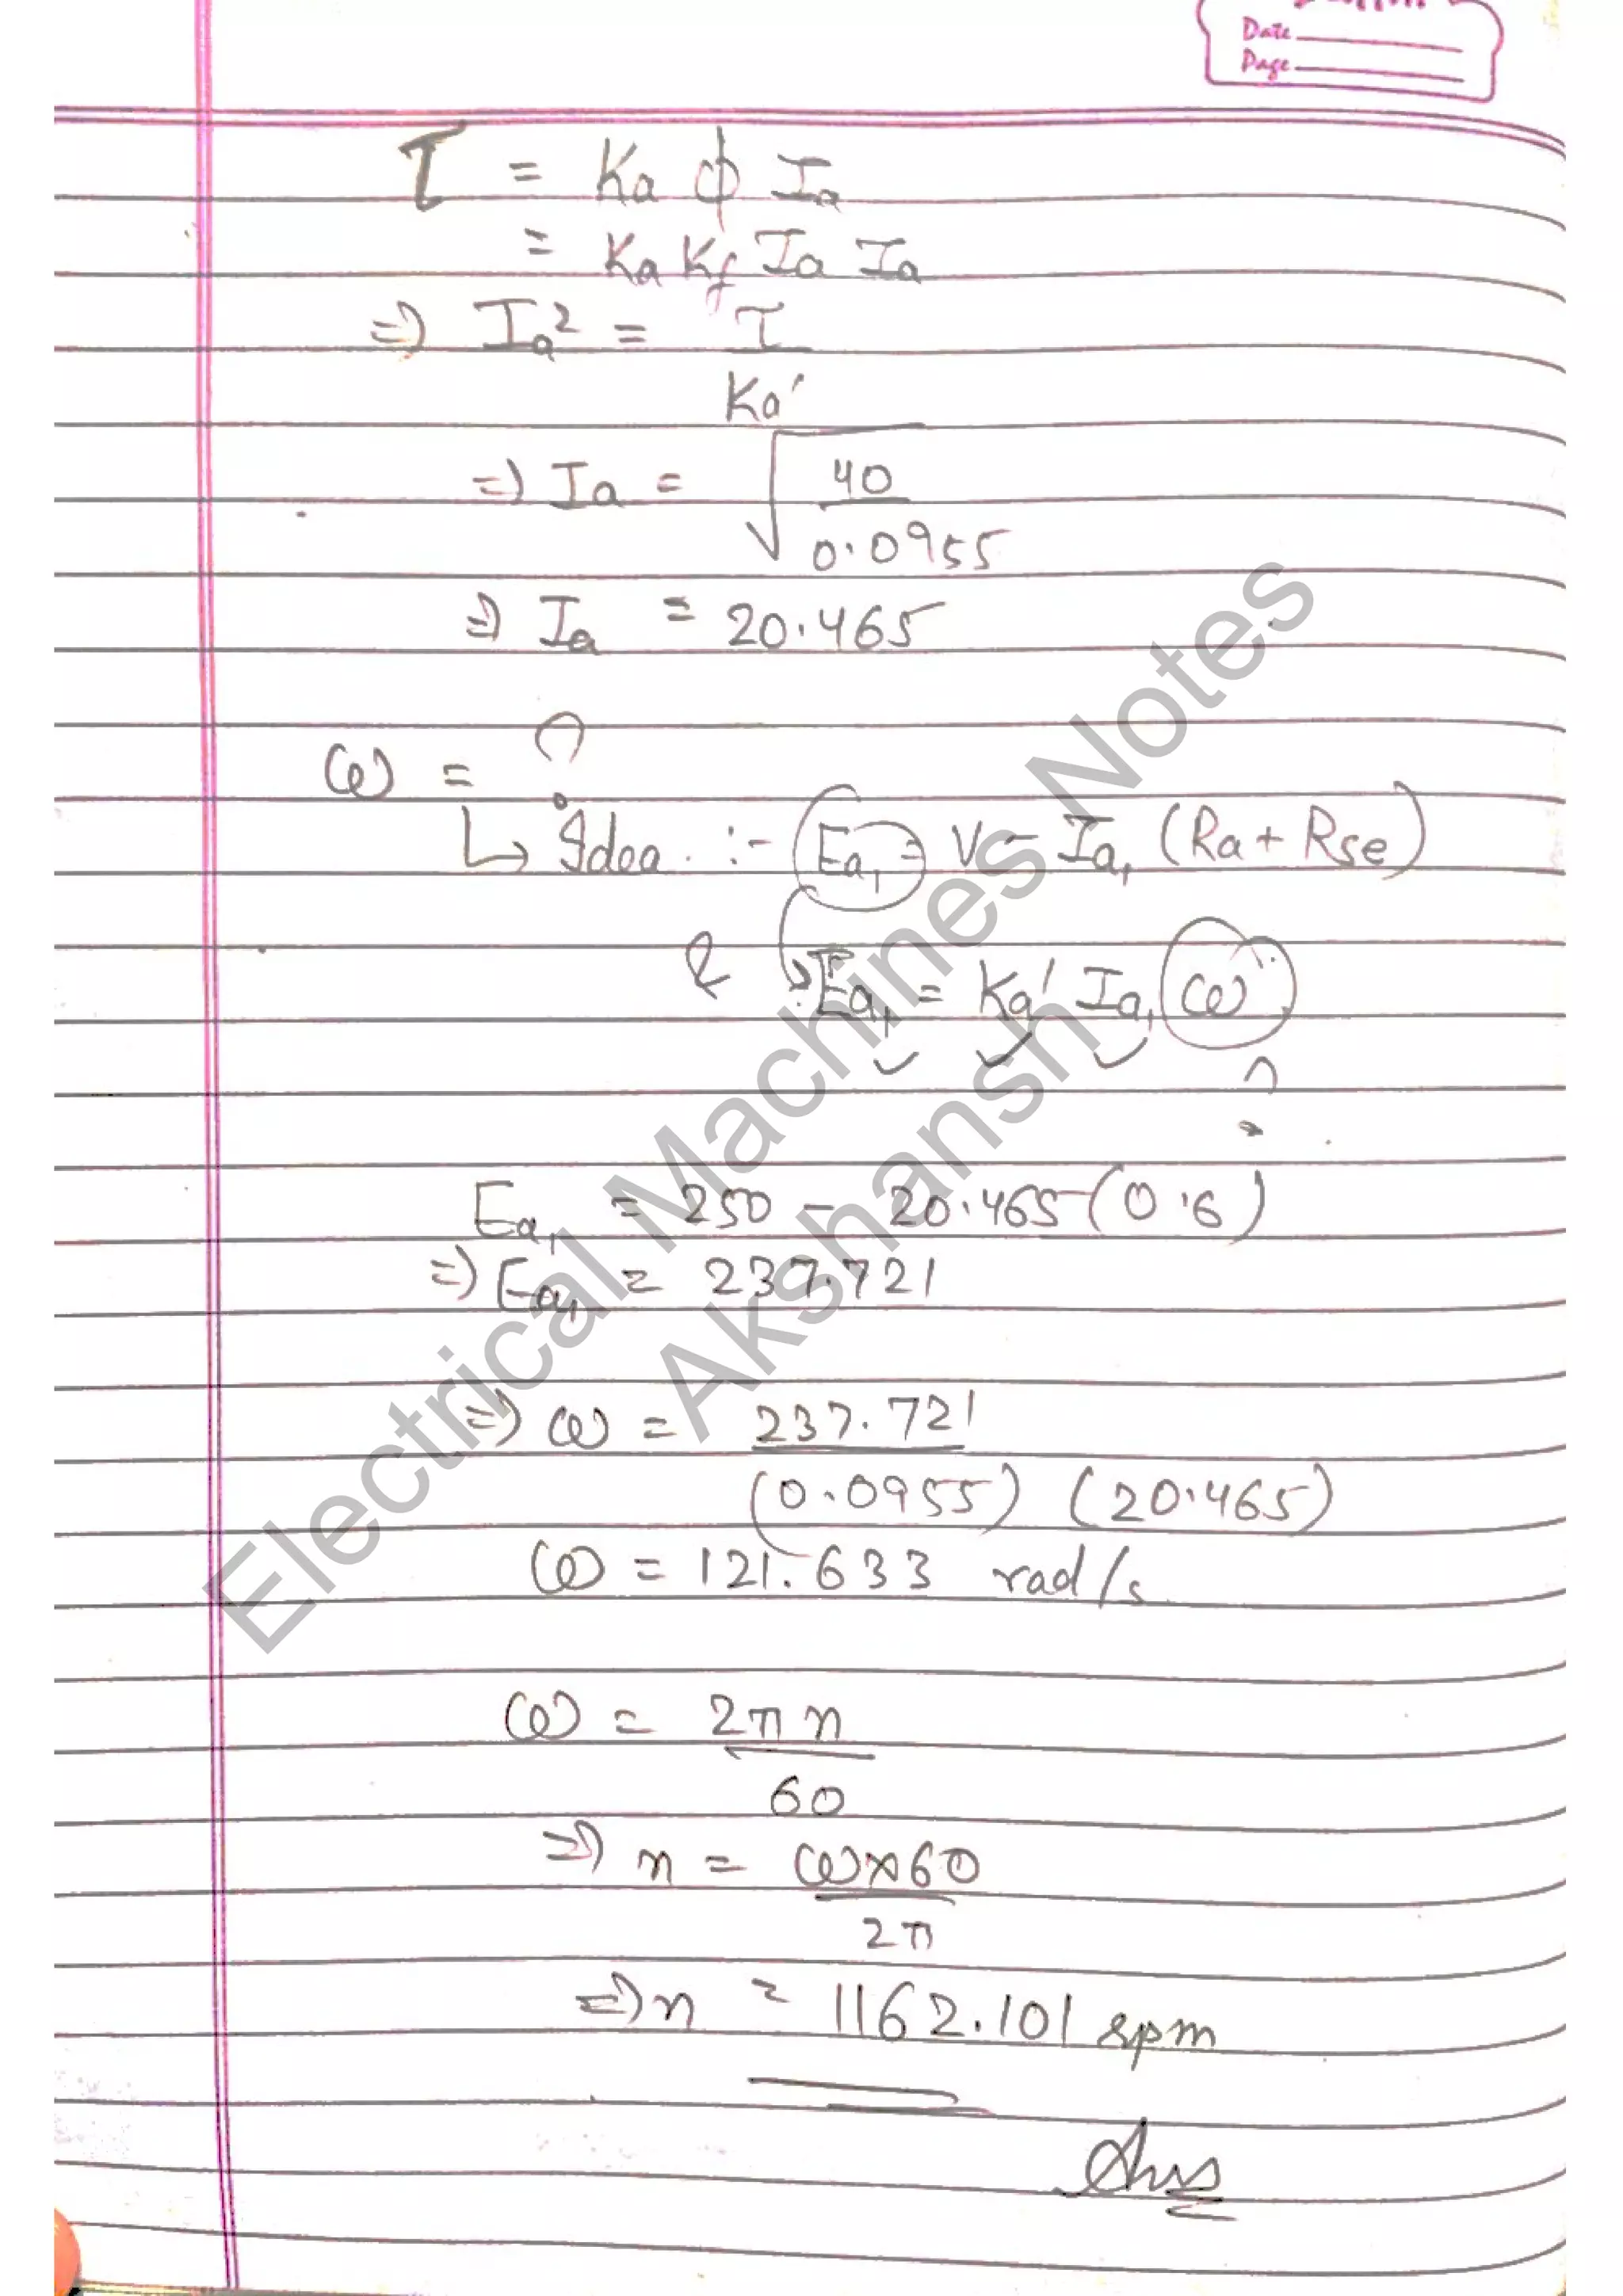 Date
Page
τ = Ka φ Ia
= Ka Kf Ia Ia
=) Ia² = τ / Ka'
=) Ia = √(40 / 0.0955)
=) Ia = 20.465
ω = ?
↳ Idea :- Ea₁ = V - Ia₁ (Ra + Rse)
& Ea₁ = Ka' Ia₁ ω
?
Ea₁ = 250 - 20.465 (0.6)
=) Ea₁ = 237.721
=) ω = 237.721 / (0.0955) (20.465)
ω = 121.633 rad/s
ω = 2πn / 60
=) n = ω×60 / 2π
=) n = 1162.101 rpm
Ans
Electrical Machines Notes
Akshansh